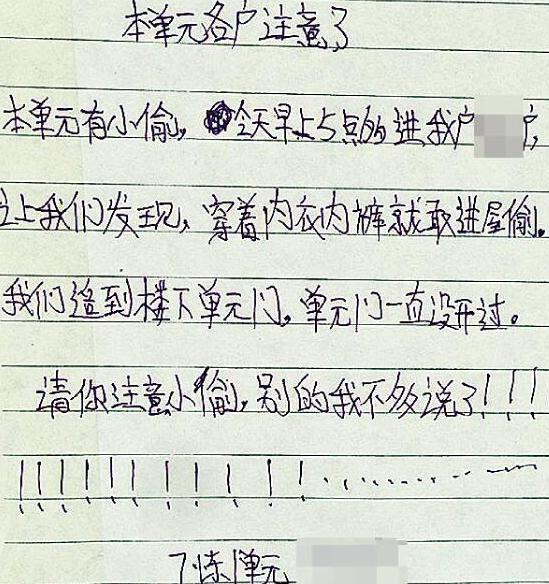 本单元各户注意了
本单元有小偷,今天早上5点的进我户 户,
让我们发现,穿着内衣内裤就敢进屋偷。
我们追到楼下单元门,单元门一直没开过。
请你注意小偷,别的我不多说了!!!
!!!!!!!!!!!!......
7栋1单元